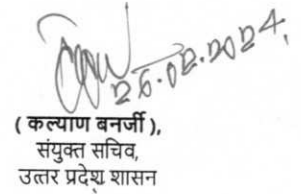 26.02.2024,
( कल्याण बनर्जी ),
संयुक्त सचिव,
उत्तर प्रदेश शासन